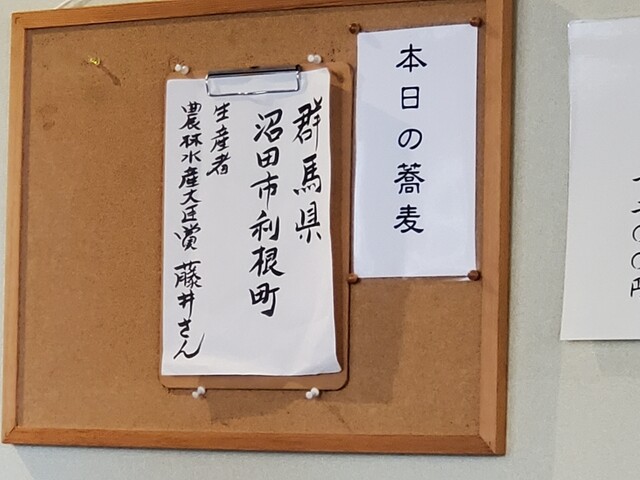 本日の蕎麦
群馬県
沼田市利根町
生産者
農林水産大臣賞 藤井さん